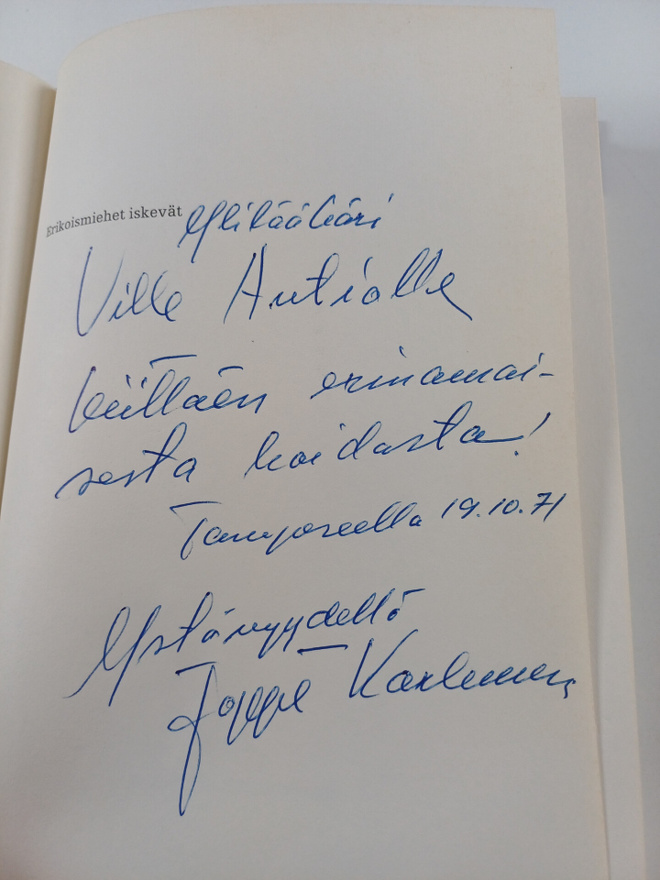 Erikoismiehet iskevät
Ylilääkäri
Ville Anttialle
kiittäen erinomai-
sesta hoidosta!
Tampereella 19.10.71
Ystävyydellä
Joppe Karhunen